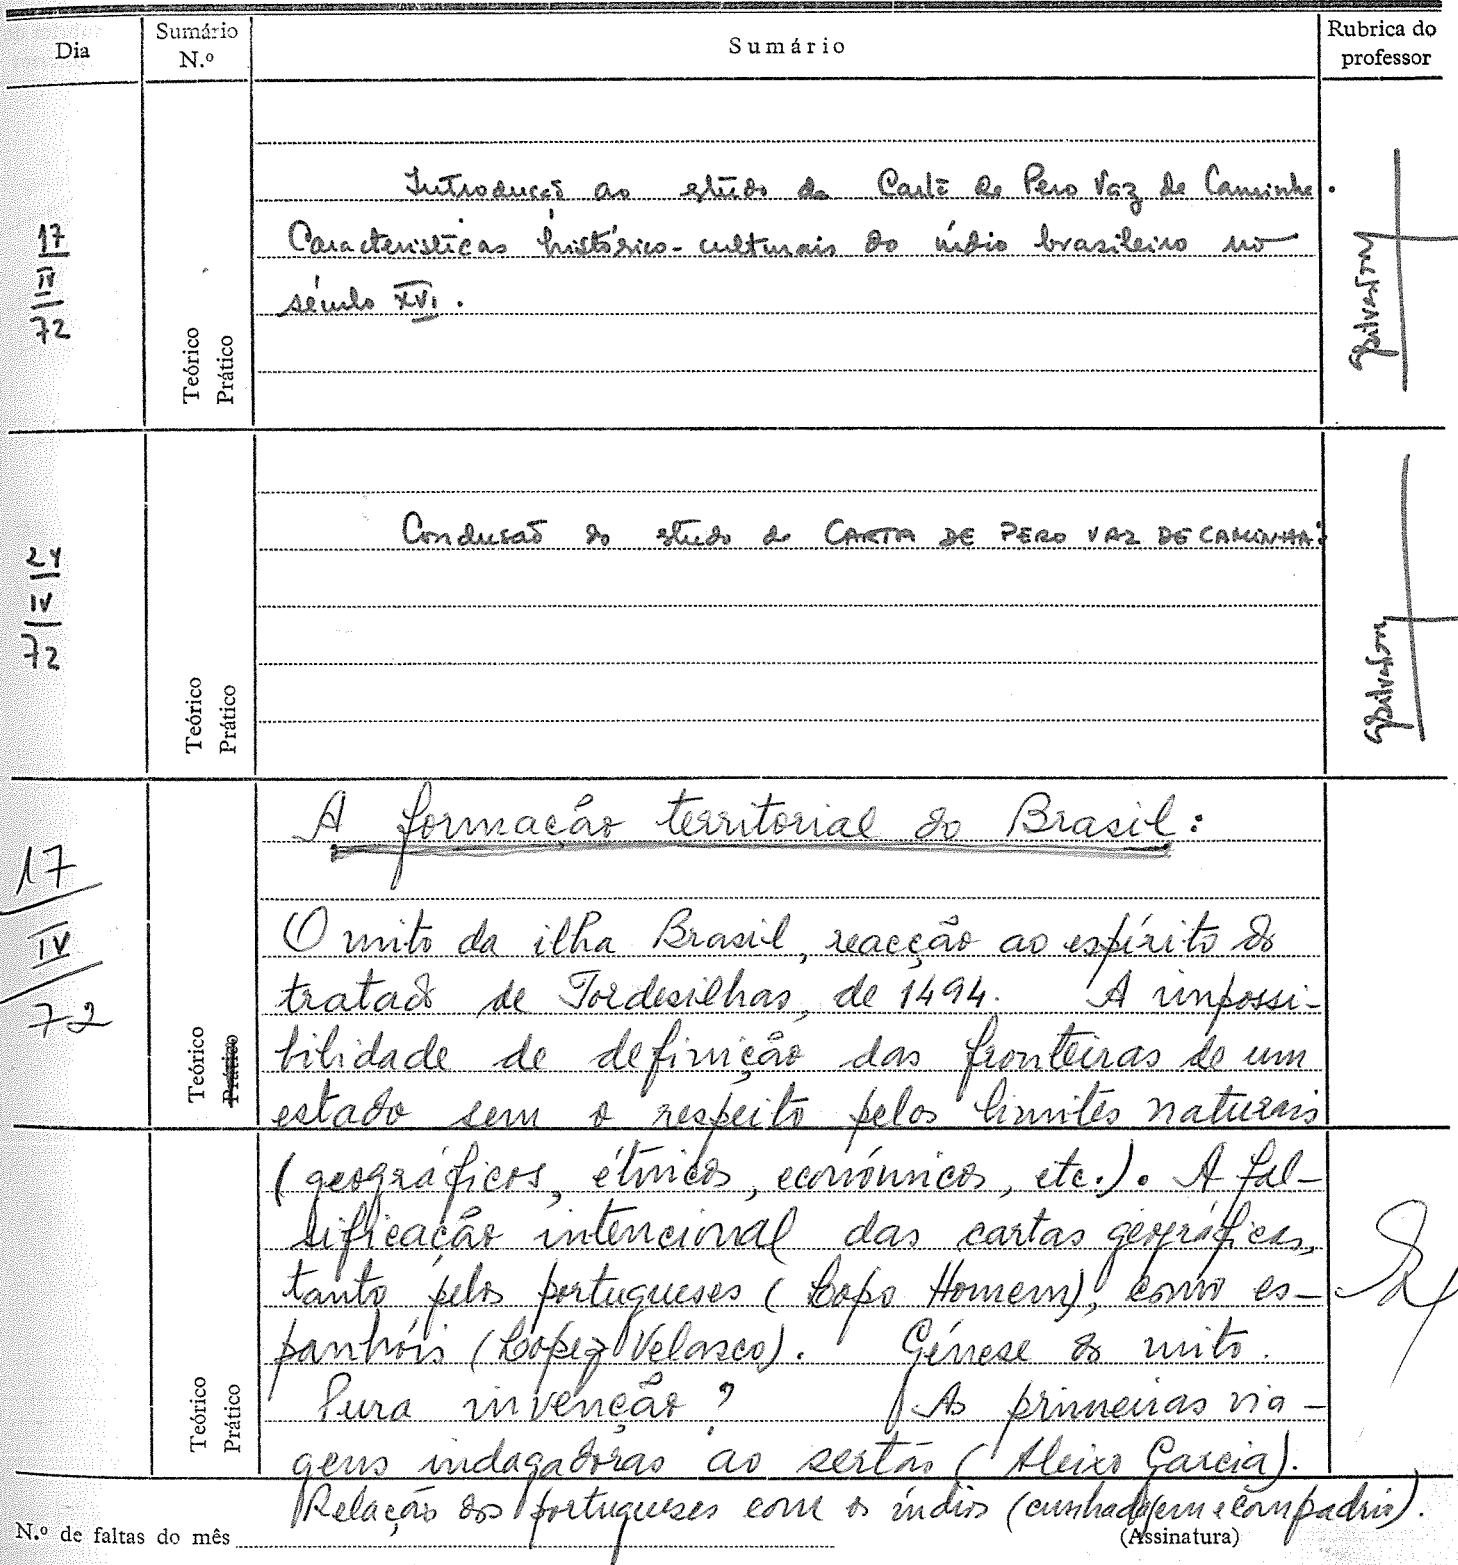 Dia
Sumário
N.º
Sumário
Rubrica do
professor
17
IV
72
Teórico
Prático
Introdução ao estudo da Carta de Pero Vaz de Caminha.
Características histórico-culturais do índio brasileiro no
século XVI.
24
IV
72
Teórico
Prático
Conclusão do estudo da CARTA DE PERO VAZ DE CAMINHA.
17
IV
72
Teórico
Prático
A formação territorial do Brasil:
O mito da ilha Brasil, reacção ao espírito do
tratado de Tordesilhas, de 1494. A impossi-
bilidade de definição das fronteiras de um
estado sem o respeito pelos limites naturais
(geográficos, étnicos, económicos, etc.). A fal-
sificação intencional das cartas geográficas,
tanto pelos portugueses (Lopo Homem), como es-
panhóis (Lopez Velasco). Génese do mito.
Pura invenção? As primeiras via-
gens indagadoras ao sertão (Aleixo Garcia).
Relação dos portugueses com os índios (cunhadagem e compadrio).
Teórico
Prático
N.º de faltas do mês
(Assinatura)